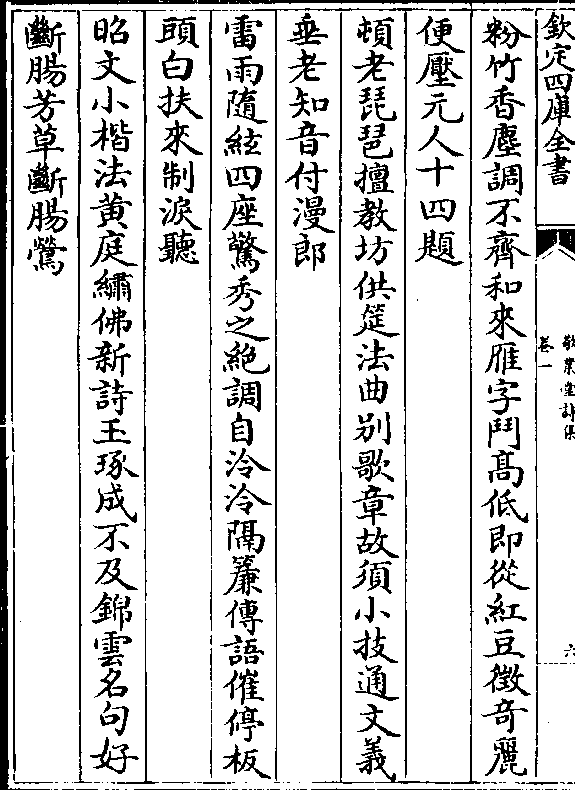 欽定四庫全書
敬業堂詩集
卷一
六
粉竹香塵調不齊和來雁字鬥髙低即從紅豆徵奇麗
便壓元人十四題
頓老琵琶擅教坊供筵法曲别歌章故須小技通文義
垂老知音付漫郎
雷雨隨絃四座驚秀之絶調自泠泠隔簾傳語催停板
頭白扶來制淚聽
昭文小楷法黄庭繡佛新詩玉琢成不及錦雲名句好
斷腸芳草斷腸鶯